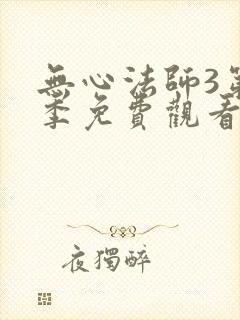 無心法師3第
季免費觀看
夜獨醉